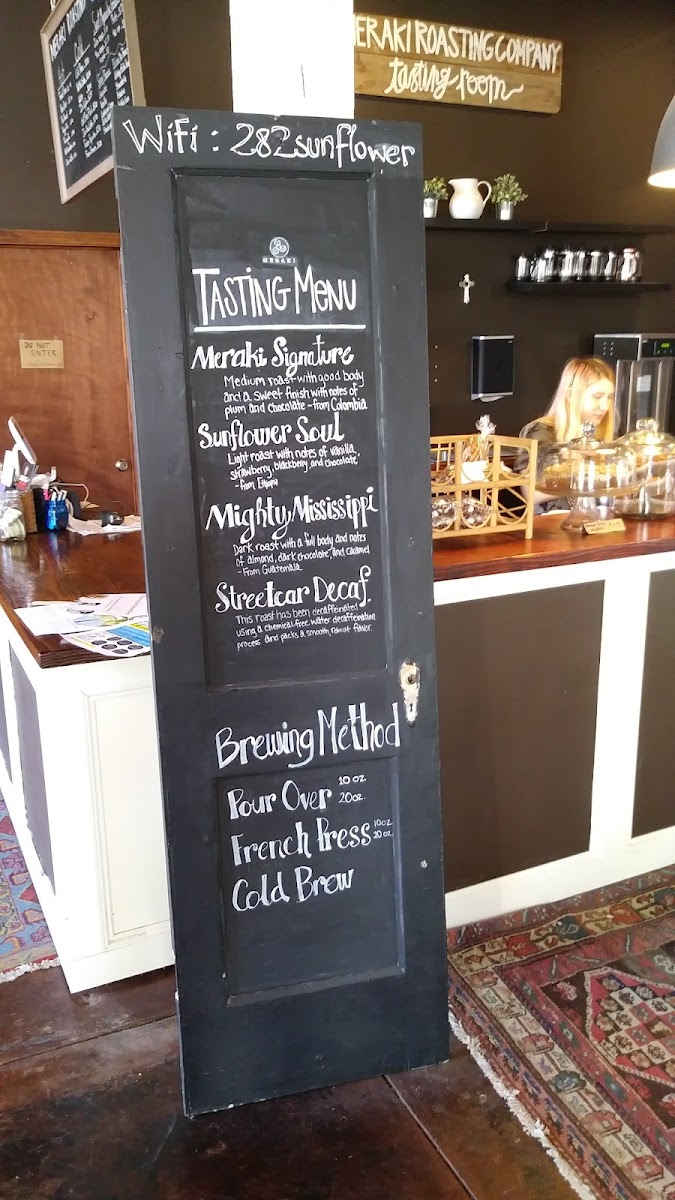 MERAKI ROASTING COMPANY
tasting room
WiFi : 282sunflower
MERAKI
TASTING MENU
Meraki Signature
Medium roast with good body
and a sweet finish with notes of
plum and chocolate - from Colombia
Sunflower Soul
Light roast with notes of vanilla,
strawberry, blackberry, and chocolate
- from Ethiopia
Mighty Mississippi
Dark roast with a full body and notes
of almond, dark chocolate, and caramel
- From Guatemala
Streetcar Decaf
This roast has been decaffeinated
using a chemical-free water decaffeination
process and packs a smooth, robust flavor.
DO NOT
ENTER
Brewing Method
Pour Over 10 oz.
20oz.
French Press 10oz
20oz
Cold Brew